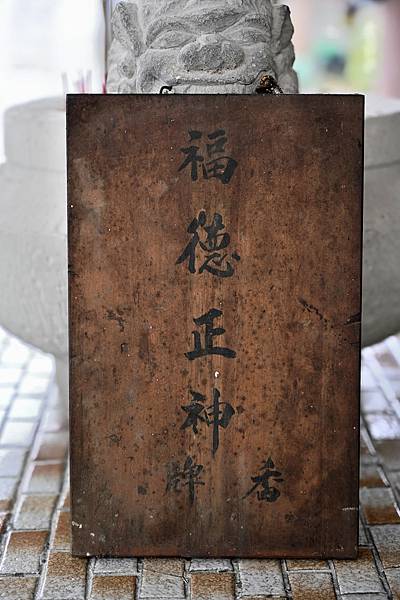 福德正神
香牌